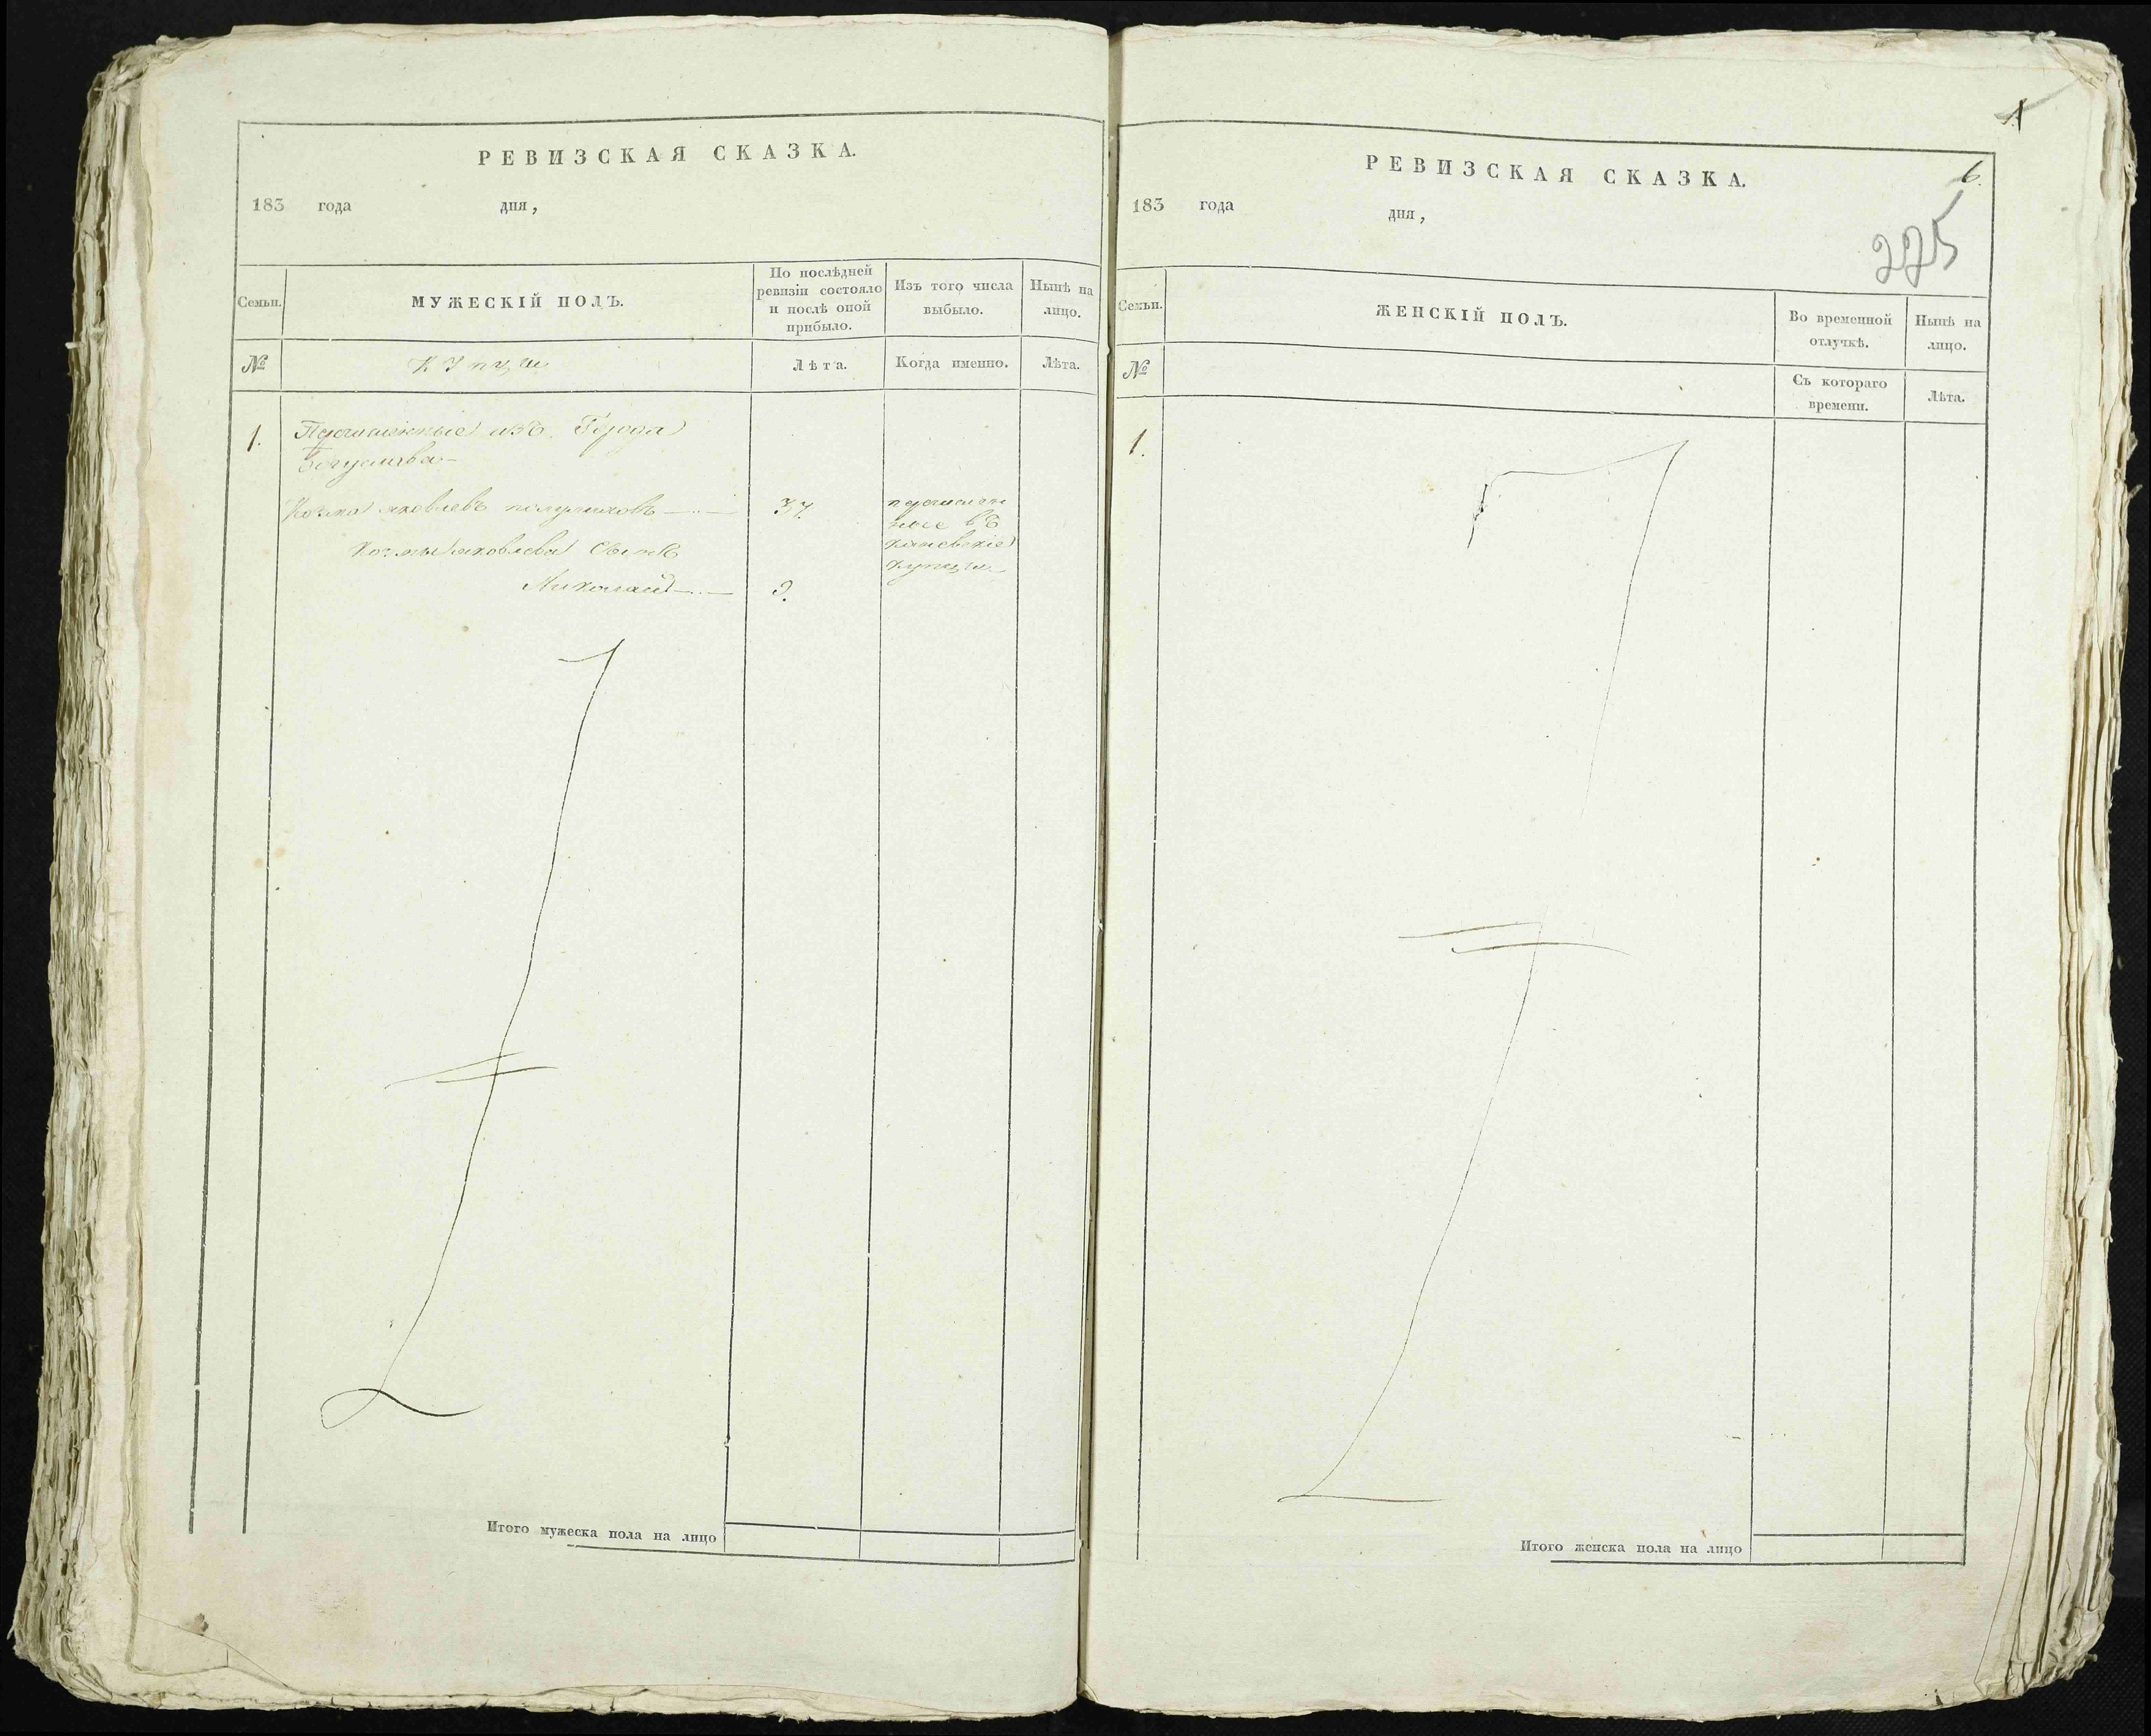 РЕВИЗСКАЯ СКАЗКА.
183 года дня,
Семьи.
МУЖЕСКІЙ ПОЛЪ.
По послѣдней
ревизіи состояло
и послѣ оной
прибыло.
Изъ того числа
выбыло.
Нынѣ на
лицо.
№
Купцы
Лѣта.
Когда именно.
Лѣта.
1. Перечисленные изъ Города
Богуслава
Козма Яковлевъ 37.
Козмы Яковлева сынъ
Николай 3.
перечислен
ные въ
каневскіе
купцы
Итого мужеска пола на лицо
1
РЕВИЗСКАЯ СКАЗКА.
6.
183 года дня,
275
Семьи.
ЖЕНСКІЙ ПОЛЪ.
Во временной
отлучкѣ.
Нынѣ на
лицо.
№
Съ котораго
времени.
Лѣта.
1.
Итого женска пола на лицо